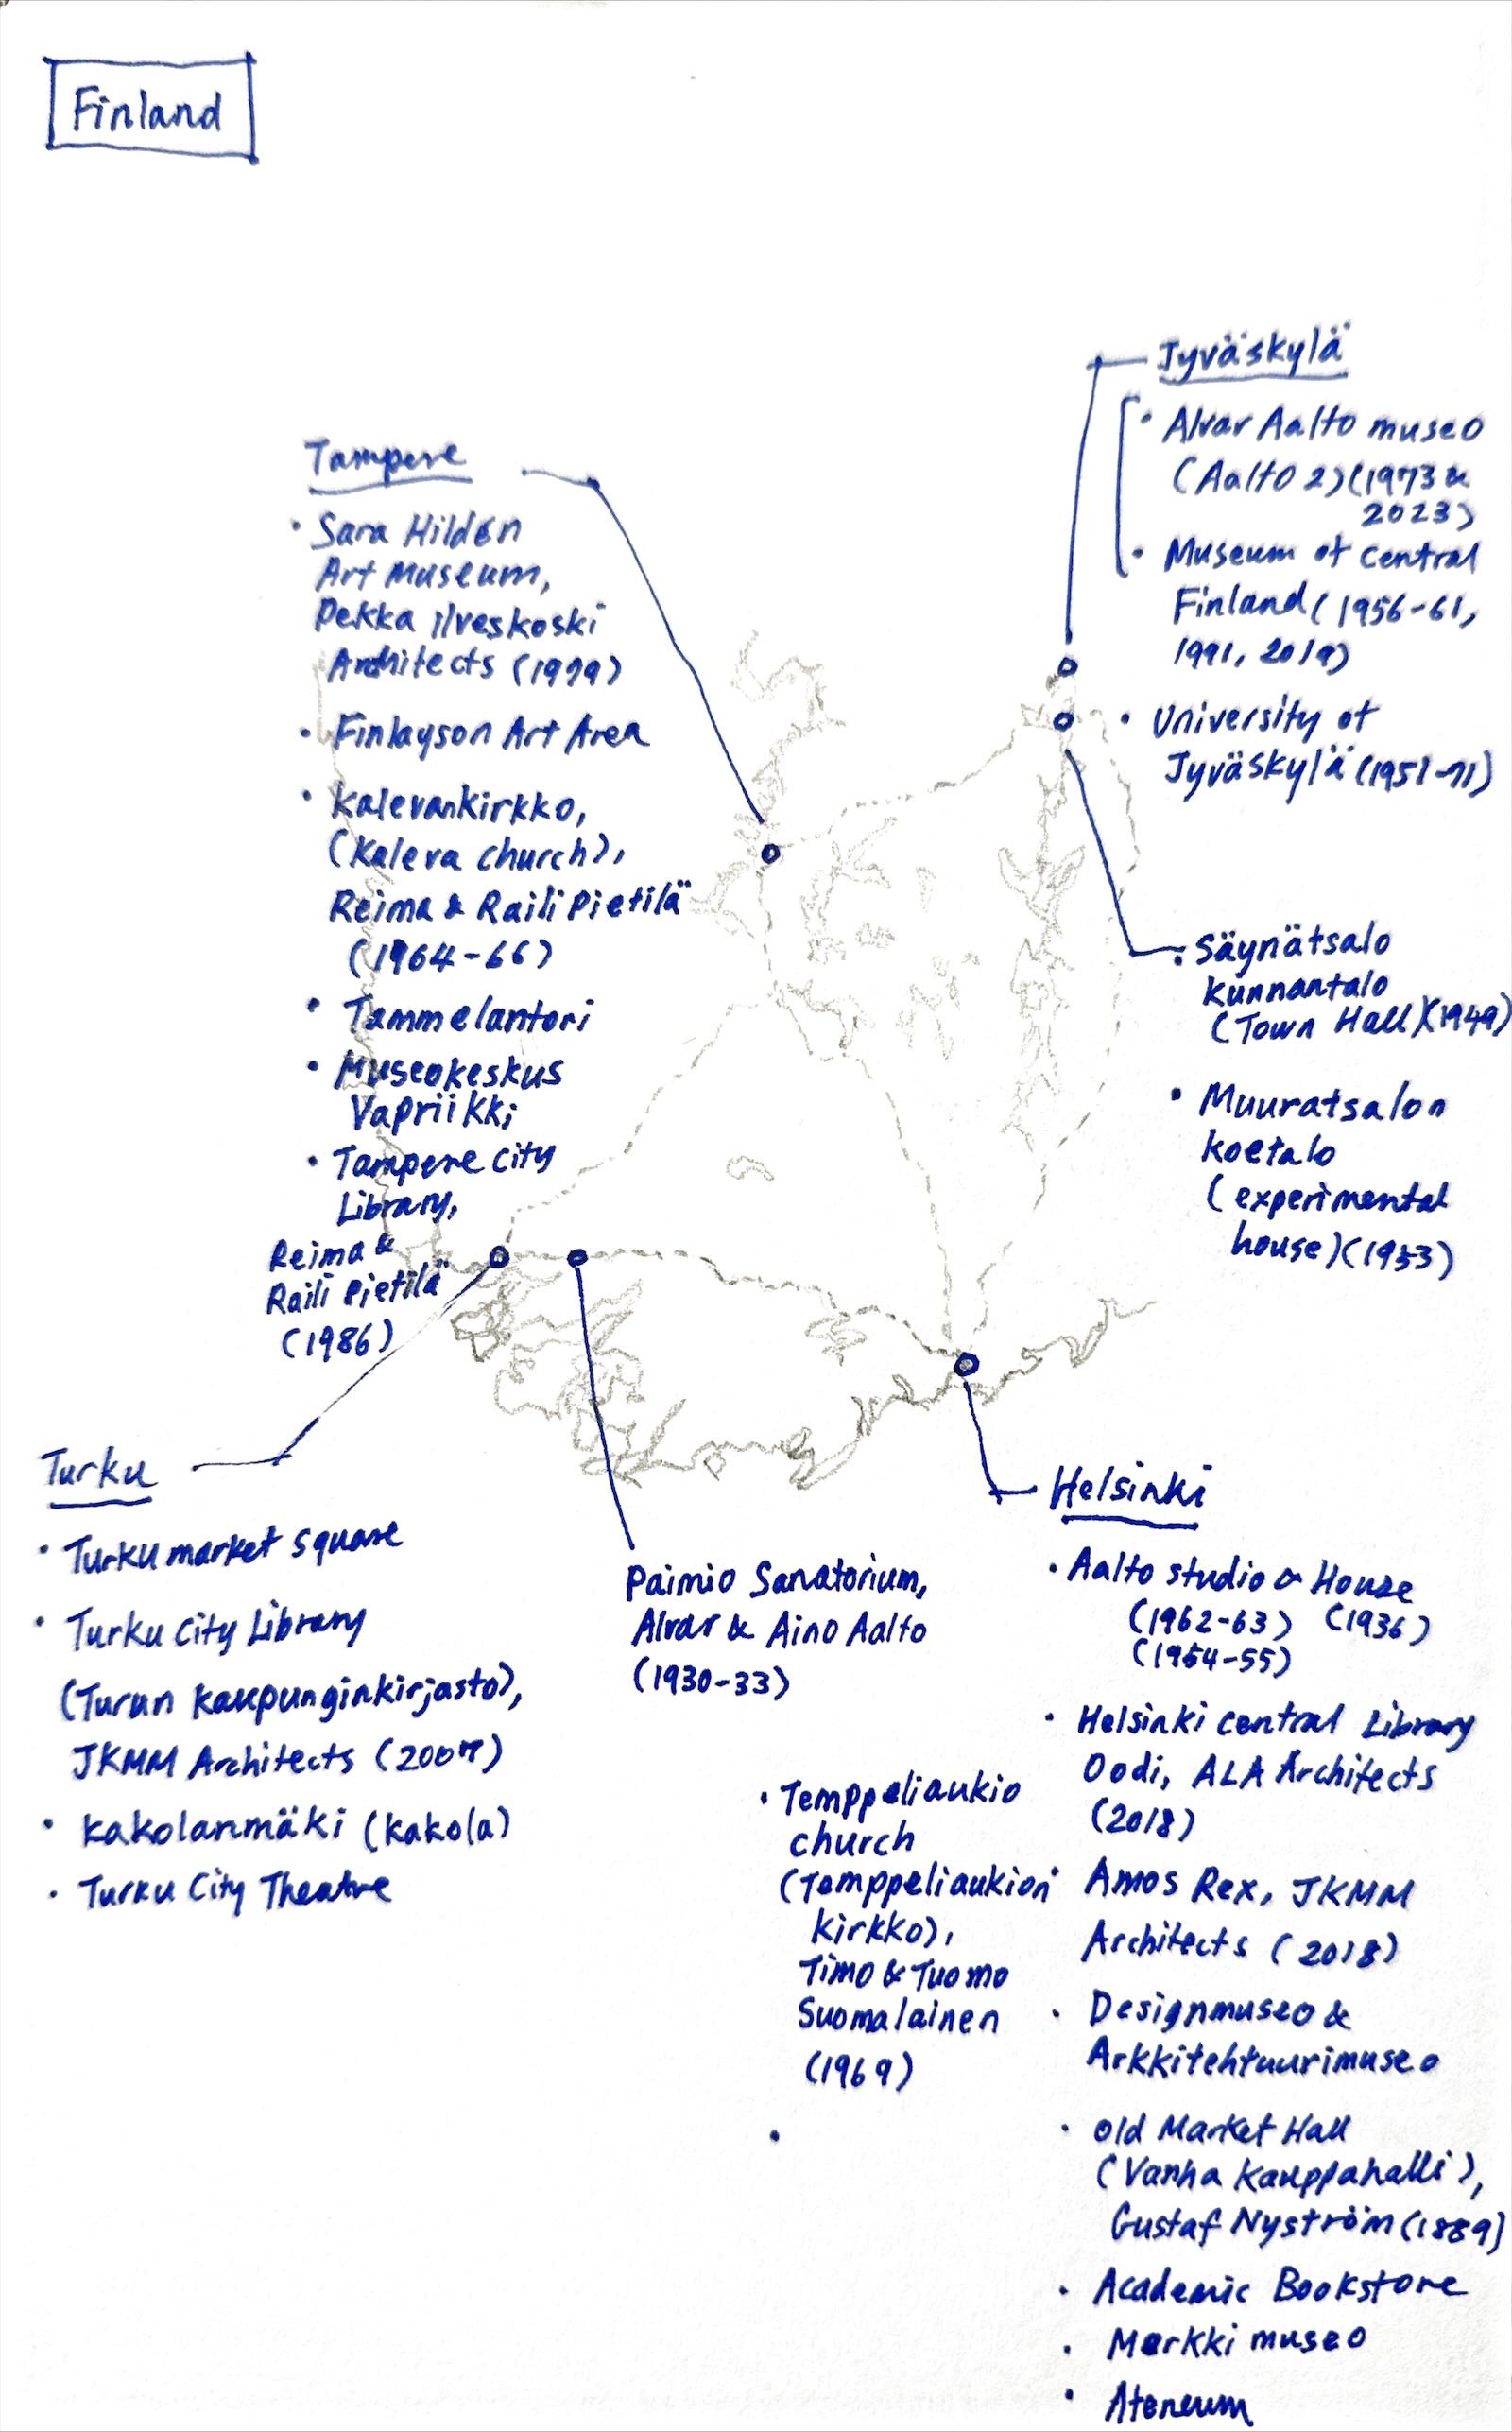 Finland
Jyväskylä
• Alvar Aalto museo
(Aalto 2)(1973 &
2023)
• Museum of central
Finland (1956-61,
1991, 2019)
• University of
Jyväskylä (1951-71)
Tampere
• Sara Hildén
Art Museum,
Pekka Ilveskoski
Architects (1979)
• Finlayson Art Area
• Kalevankirkko,
(Kaleva church),
Reima & Raili Pietilä
(1964-66)
• Tammelantori
• Museokeskus
Vapriikki
• Tampere city
Library,
Reima &
Raili Pietilä
(1986)
• Säynätsalo
kunnantalo
(Town Hall)(1949)
• Muuratsalon
koetalo
(experimental
house)(1953)
Turku
• Turku market square
• Turku City Library
(Turun kaupunginkirjasto),
JKMM Architects (2007)
• Kakolanmäki (Kakola)
• Turku City Theatre
Paimio Sanatorium,
Alvar & Aino Aalto
(1930-33)
Helsinki
• Aalto studio & House
(1962-63) (1936)
(1954-55)
• Helsinki central Library
Oodi, ALA Architects
(2018)
• Amos Rex, JKMM
Architects (2018)
• Designmuseo &
Arkkitehtuurimuseo
• Old Market Hall
(Vanha Kauppahalli),
Gustaf Nyström (1889)
• Academic Bookstore
• Merkki museo
• Ateneum
• Temppeliaukio
church
(Temppeliaukion
kirkko),
Timo & Tuomo
Suomalainen
(1969)
•